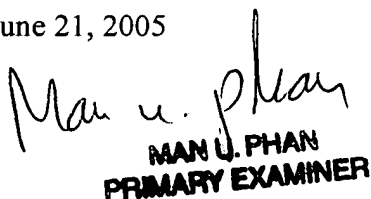 une 21, 2005
Man u. phan
MAN U. PHAN
PRIMARY EXAMINER